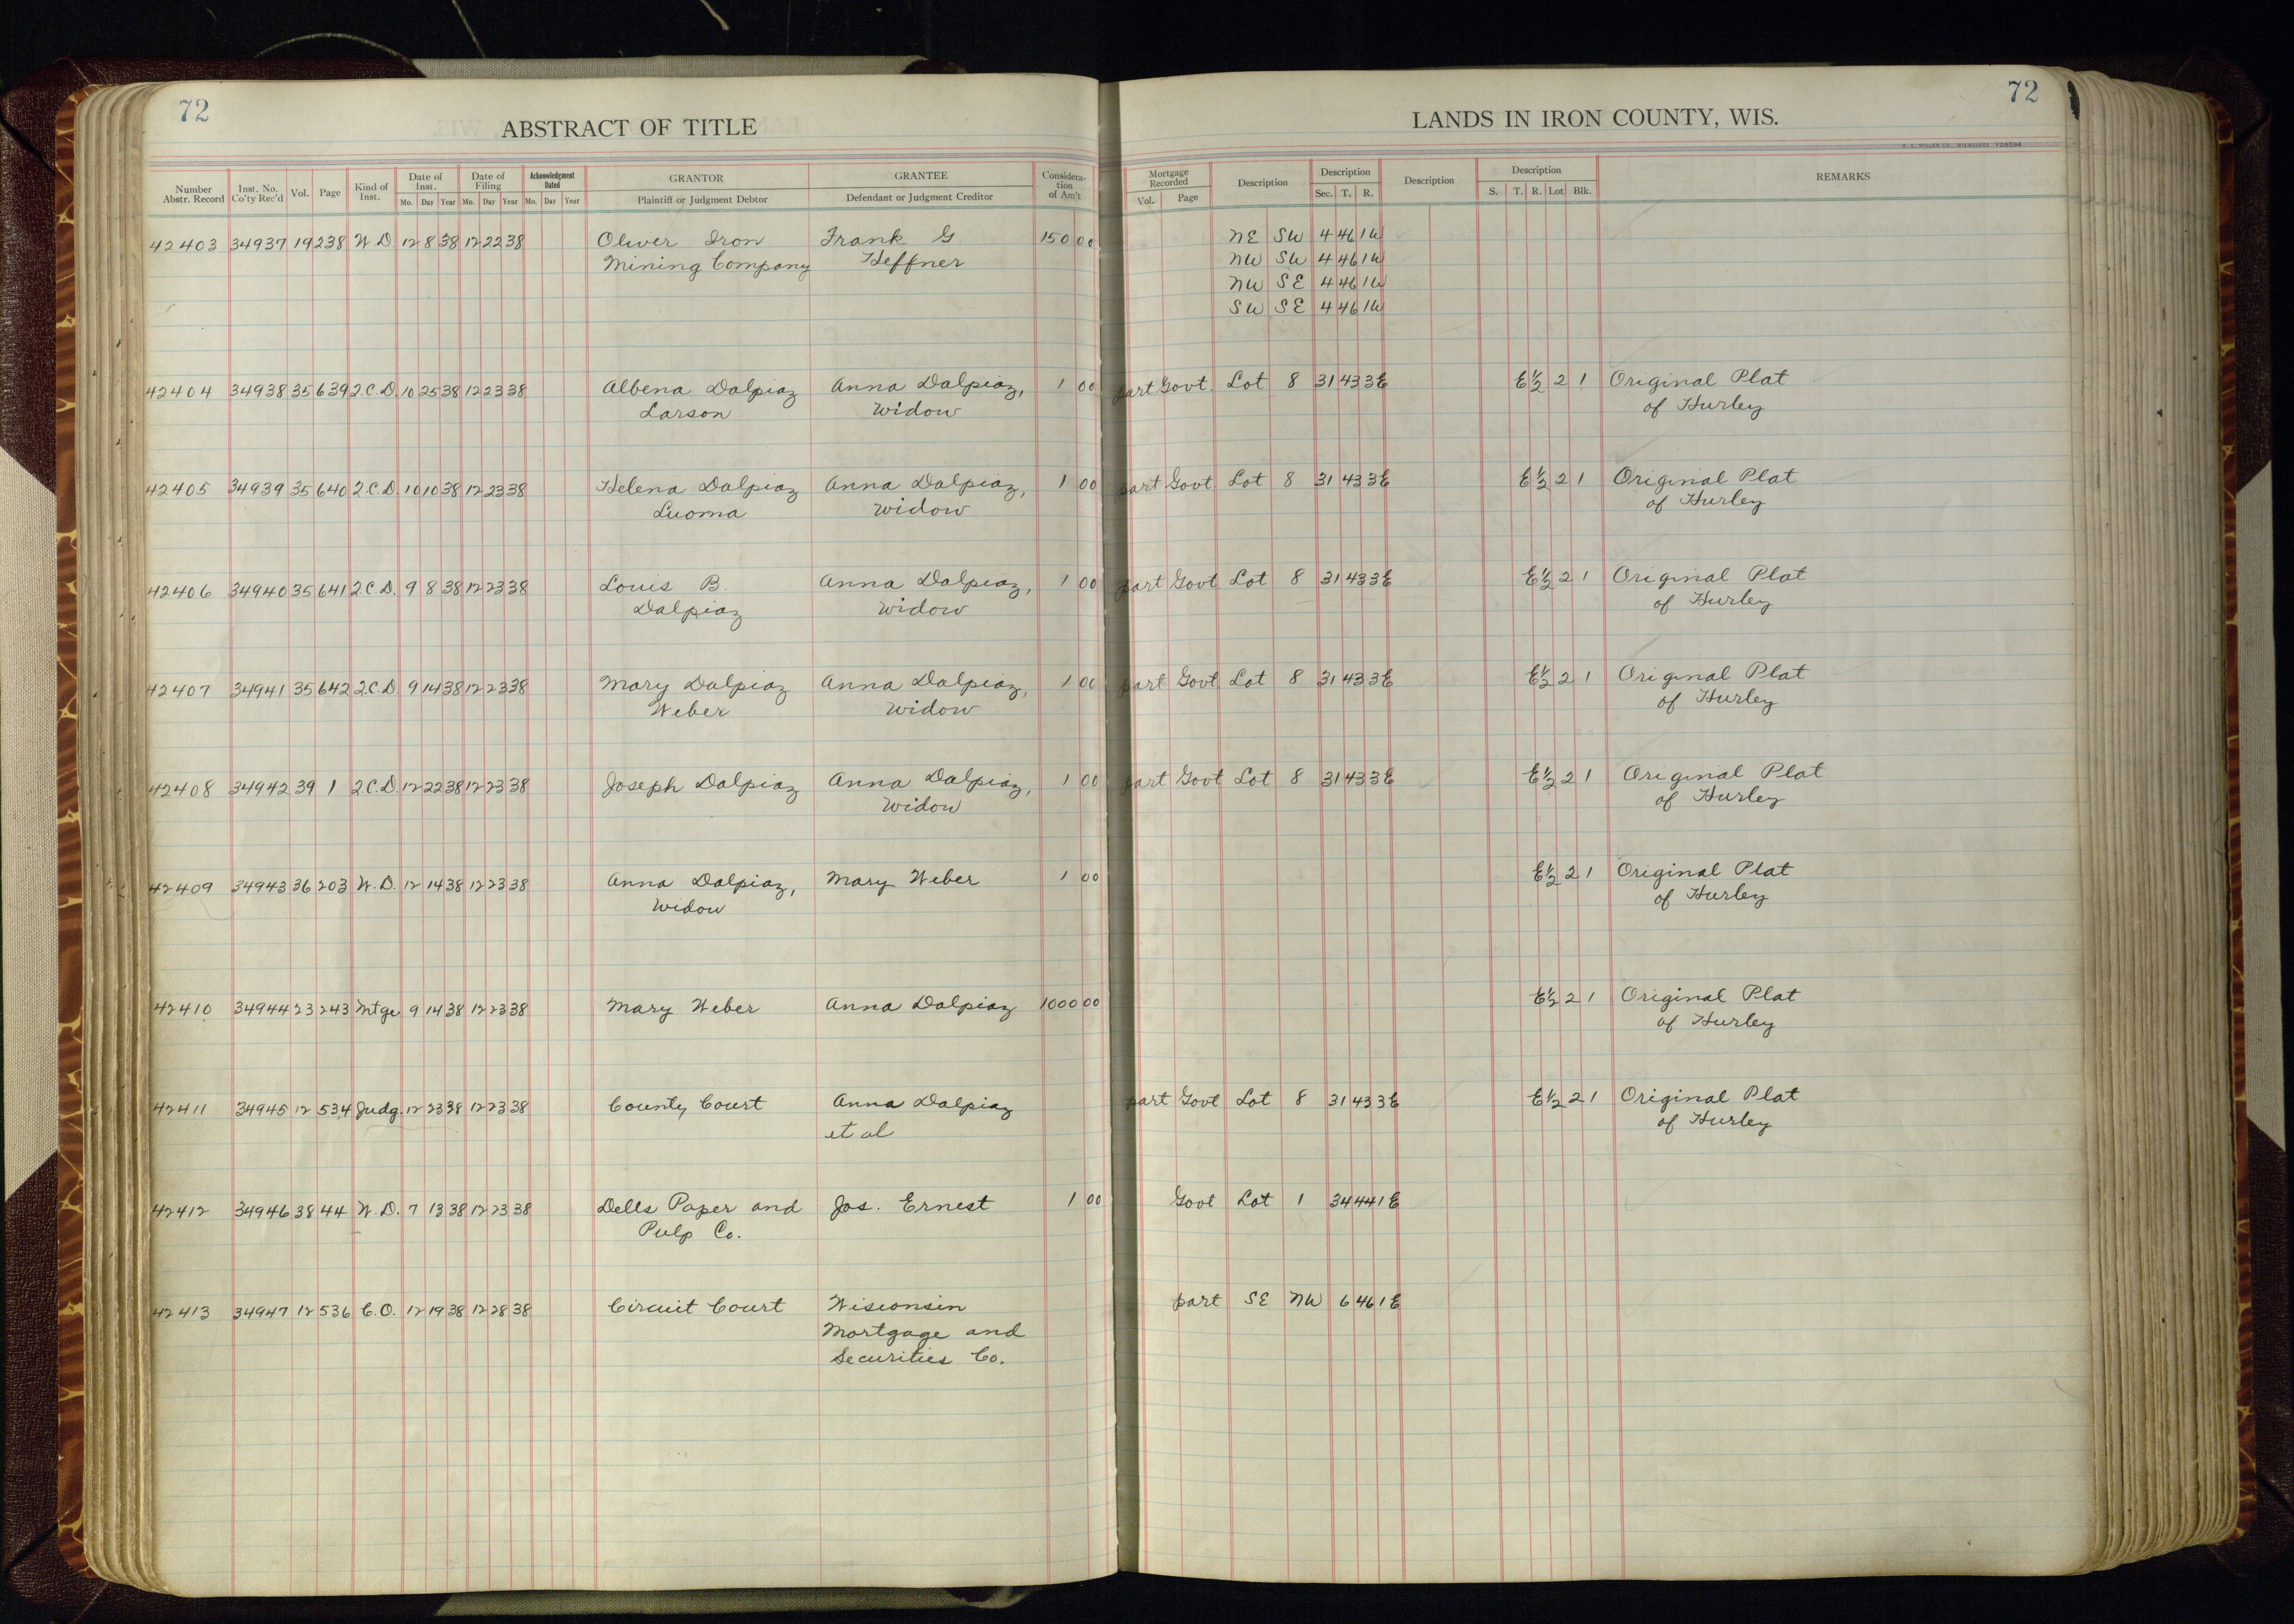 72
ABSTRACT OF TITLE
72
LANDS IN IRON COUNTY, WIS.
H. C. MILLER CO., MILWAUKEE
Number Abstr. Record | Inst. No. Co'ty Rec'd | Vol. | Page | Kind of Inst. | Date of Inst. Mo. Day Year | Date of Filing Mo. Day Year | Acknowledgment Dated Mo. Day Year | GRANTOR Plaintiff or Judgment Debtor | GRANTEE Defendant or Judgment Creditor | Consideration of Am't | Mortgage Recorded Vol. Page | Description | Description Sec. T. R. | Description | Description S. T. R. Lot Blk. | REMARKS
42403 34937 19 238 W.D 12 8 38 12 22 38 Oliver Iron Frank G 150 00 NE SW 4 46 1W
Mining Company Heffner NW SW 4 46 1W
NW SE 4 46 1W
SW SE 4 46 1W
42404 34938 35 639 2.C.D. 10 25 38 12 23 38 Albena Dalpiaz Anna Dalpiaz, 1 00 part Govt. Lot 8 31 43 3E E½ 2 1 Original Plat
Larson widow of Hurley
42405 34939 35 640 2.C.D. 10 10 38 12 23 38 Helena Dalpiaz Anna Dalpiaz, 1 00 part Govt Lot 8 31 43 3E E½ 2 1 Original Plat
Luoma widow of Hurley
42406 34940 35 641 2.C.D. 9 8 38 12 23 38 Louis B. Anna Dalpiaz, 1 00 part Govt Lot 8 31 43 3E E½ 2 1 Original Plat
Dalpiaz widow of Hurley
42407 34941 35 642 2.C.D 9 14 38 12 23 38 Mary Dalpiaz Anna Dalpiaz, 1 00 part Govt Lot 8 31 43 3E E½ 2 1 Original Plat
Weber widow of Hurley
42408 34942 39 1 2.C.D. 12 22 38 12 23 38 Joseph Dalpiaz Anna Dalpiaz, 1 00 part Govt Lot 8 31 43 3E E½ 2 1 Original Plat
widow of Hurley
42409 34943 36 203 W.D. 12 14 38 12 23 38 Anna Dalpiaz, Mary Weber 1 00 E½ 2 1 Original Plat
widow of Hurley
42410 34944 23 243 Mtge 9 14 38 12 23 38 Mary Weber Anna Dalpiaz 1000 00 E½ 2 1 Original Plat
of Hurley
42411 34945 12 534 Judg. 12 23 38 12 23 38 County Court Anna Dalpiaz part Govt Lot 8 31 43 3E E½ 2 1 Original Plat
et al of Hurley
42412 34946 38 44 W.D. 7 13 38 12 23 38 Dells Paper and Jos. Ernest 1 00 Govt Lot 1 34 44 1E
Pulp Co.
42413 34947 12 536 C.O. 12 19 38 12 28 38 Circuit Court Wisconsin part SE NW 6 46 1E
Mortgage and
Securities Co.